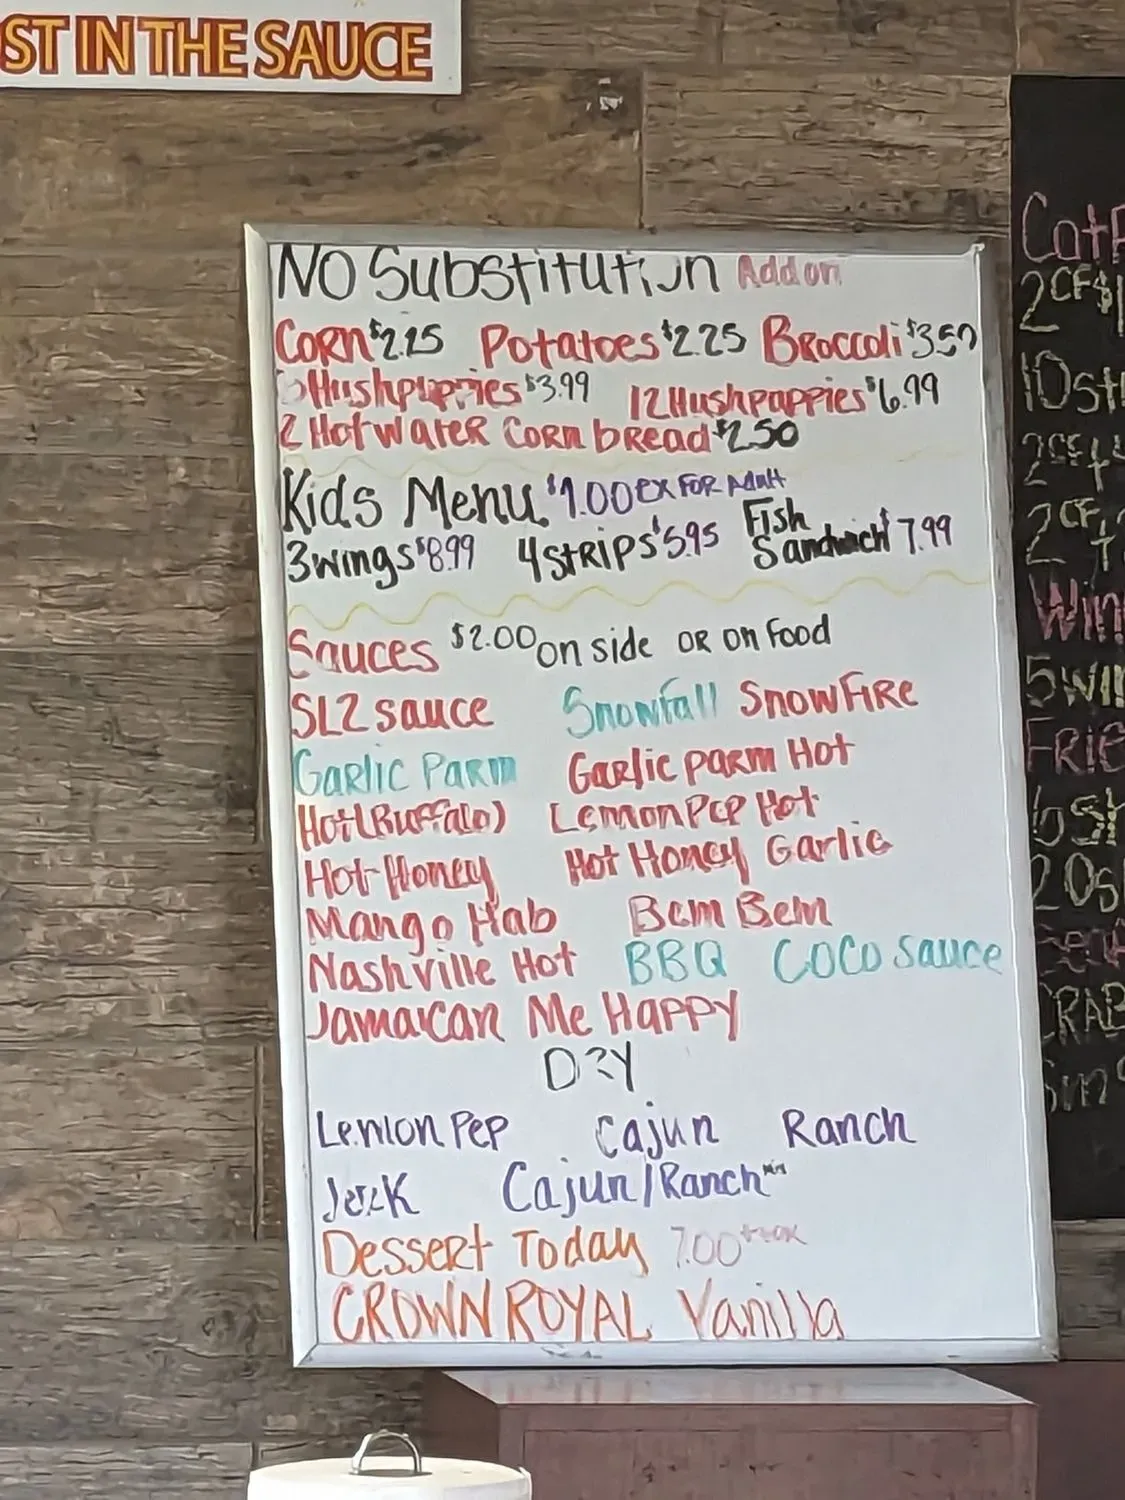 ST IN THE SAUCE
NO Substitution Add on
Corn $2.25 Potatoes $2.25 Broccoli $3.50
Hushpuppies $3.99 12 Hushpuppies $6.99
2 Hot water Corn bread $2.50
Kids Menu $1.00 ex FOR Adult
3 wings $8.99 4 STRIPS $5.95 Fish Sandwich $7.99
Sauces $2.00 on side OR on food
SL2 sauce Snowfall SNOWFIRE
Garlic Parm Garlic parm Hot
Hot (Buffalo) Lemon Pep Hot
Hot Honey Hot Honey Garlic
Mango Hab Bem Bem
Nashville Hot BBQ COCO sauce
Jamaican Me Happy
DRY
Lemon Pep Cajun Ranch
Jerk Cajun/Ranch mix
Dessert Today 7.00
CROWN ROYAL Vanilla
2 CF $
10 st
2 CF +
2 CF +
Win
5 Win
FRIE
CRAB